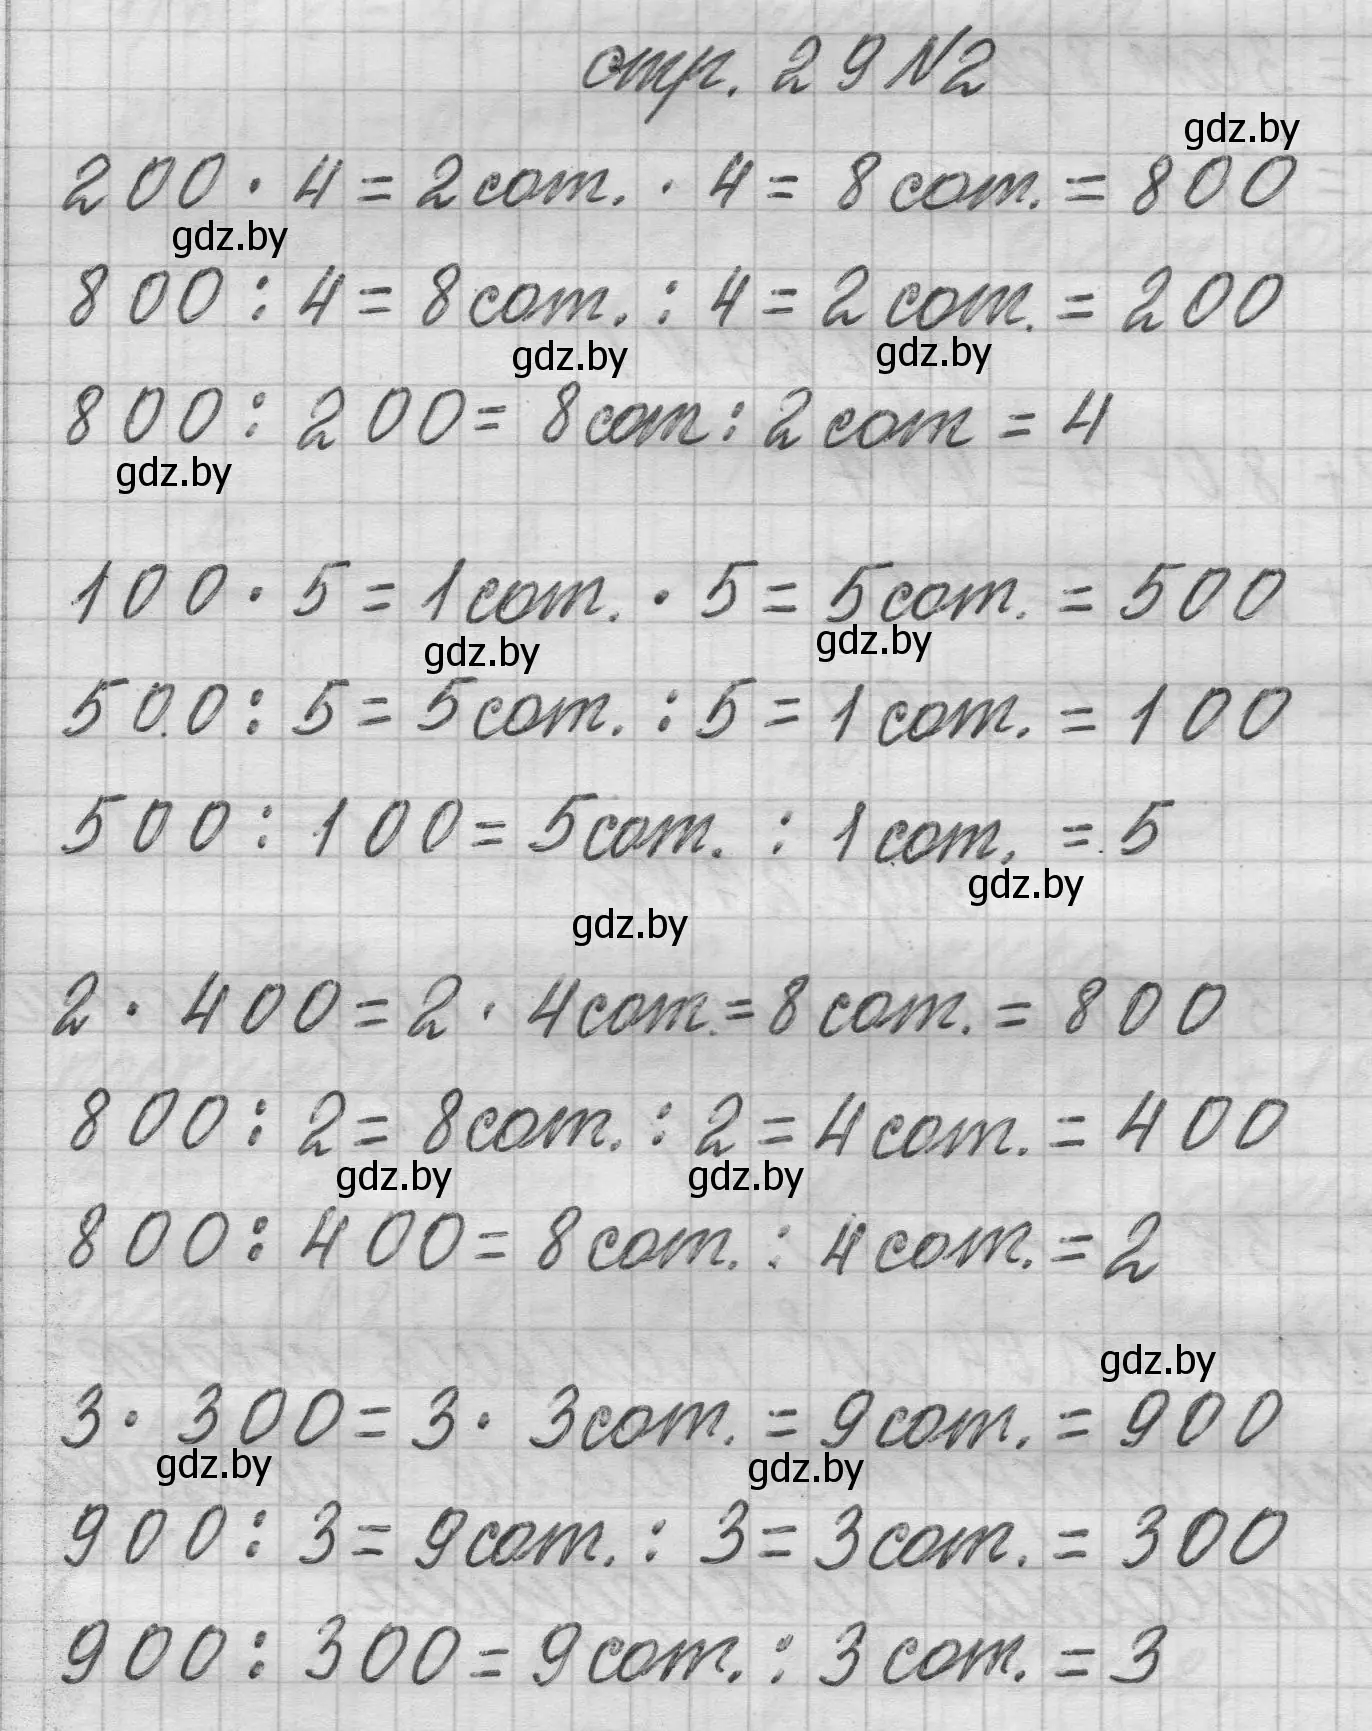 стр. 29 №2
gdz.by
200 · 4 = 2 сот. · 4 = 8 сот. = 800
gdz.by
800 : 4 = 8 сот. : 4 = 2 сот. = 200
gdz.by gdz.by
800 : 200 = 8 сот : 2 сот = 4
gdz.by
100 · 5 = 1 сот. · 5 = 5 сот. = 500
gdz.by gdz.by
500 : 5 = 5 сот. : 5 = 1 сот. = 100
500 : 100 = 5 сот. : 1 сот. = 5
gdz.by
gdz.by
2 · 400 = 2 · 4 сот. = 8 сот. = 800
800 : 2 = 8 сот. : 2 = 4 сот. = 400
gdz.by gdz.by
800 : 400 = 8 сот. : 4 сот. = 2
gdz.by
3 · 300 = 3 · 3 сот. = 9 сот. = 900
gdz.by gdz.by
900 : 3 = 9 сот. : 3 = 3 сот. = 300
900 : 300 = 9 сот. : 3 сот. = 3